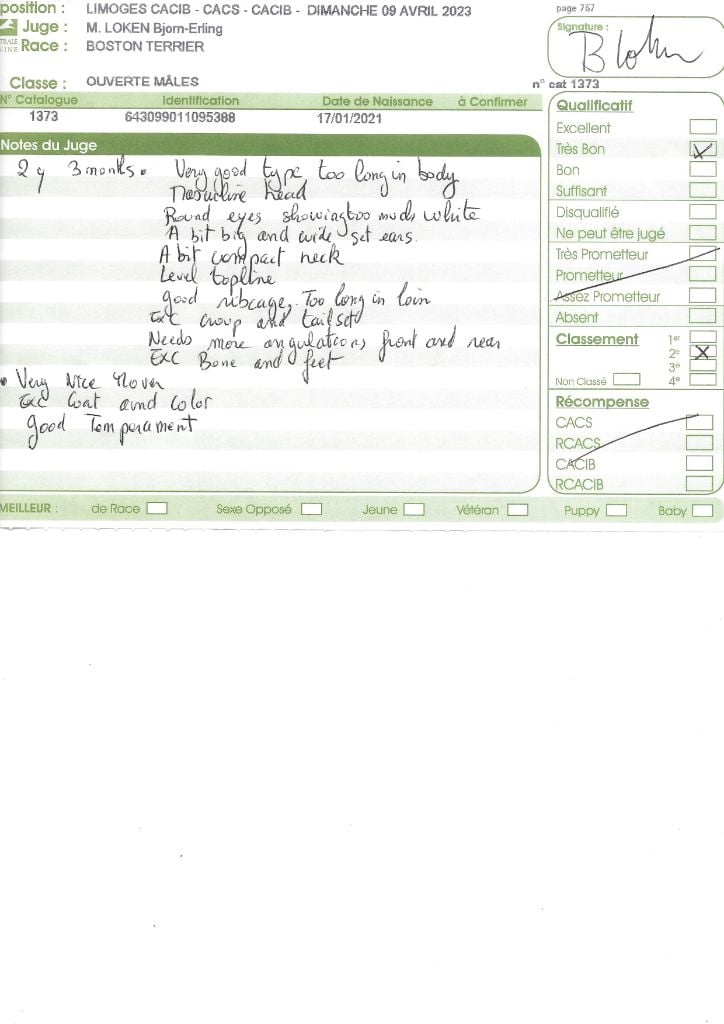 position : LIMOGES CACIB - CACS - CACIB - DIMANCHE 09 AVRIL 2023
page 767
Juge : M. LOKEN Bjorn-Erling
Signature :
B Loken
TRALE
NINE
Race : BOSTON TERRIER
Classe : OUVERTE MÂLES
n° cat 1373
N° Catalogue Identification Date de Naissance à Confirmer
1373 643099011095388 17/01/2021
Notes du Juge
2 y 3 months. Very good type too long in body
Masculine head
Round eyes showing too much white
A bit big and wide set ears.
A bit compact neck
Level topline
good ribcage. Too long in loin
Exc croup and tailset
Needs more angulations front and rear
Exc Bone and feet
• Very Nice Mover
Exc Coat and color
Good Temperament
Qualificatif
Excellent
Très Bon X
Bon
Suffisant
Disqualifié
Ne peut être jugé
Très Prometteur
Prometteur
Assez Prometteur
Absent
Classement 1er
2e X
3e
Non Classé 4e
Récompense
CACS
RCACS
CACIB
RCACIB
MEILLEUR : de Race Sexe Opposé Jeune Vétéran Puppy Baby